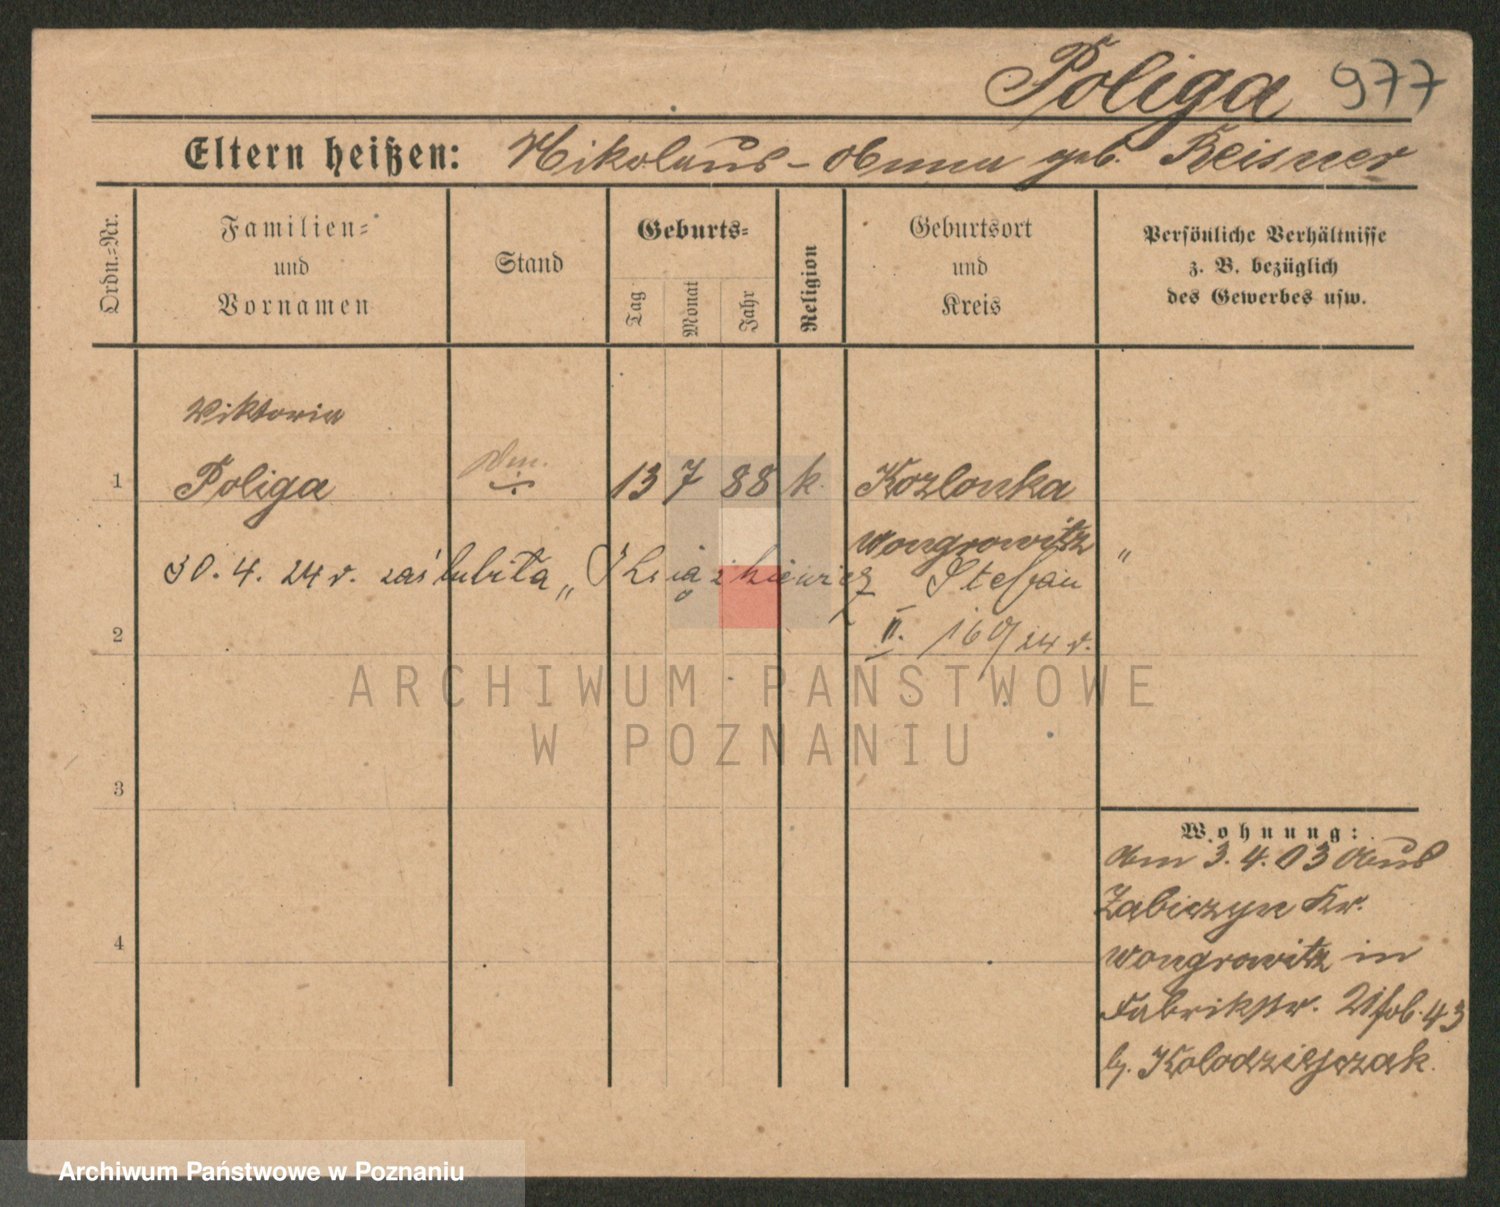 Poliga 977
Eltern heißen: Nikolaus - Anna geb. Reisner
Ordn.-Nr.
Familien-
und
Vornamen
Stand
Geburts-
Tag
Monat
Jahr
Religion
Geburtsort
und
Kreis
Persönliche Verhältnisse
z. B. bezüglich
des Gewerbes usw.
Viktoria
1 Poliga 13 7 88 k. Kozlonka
Wongrowitz "
30. 4. 24 r. zaślubiła „ Książkiewicz Stefan
2 II. 160/24 r.
ARCHIWUM PAŃSTWOWE
W POZNANIU
3
Wohnung:
Am 3. 4. 03 aus
Zabiczyn Kr.
4 Wongrowitz in
Fabrikstr. 43
b. Kolodziejczak.
Archiwum Państwowe w Poznaniu